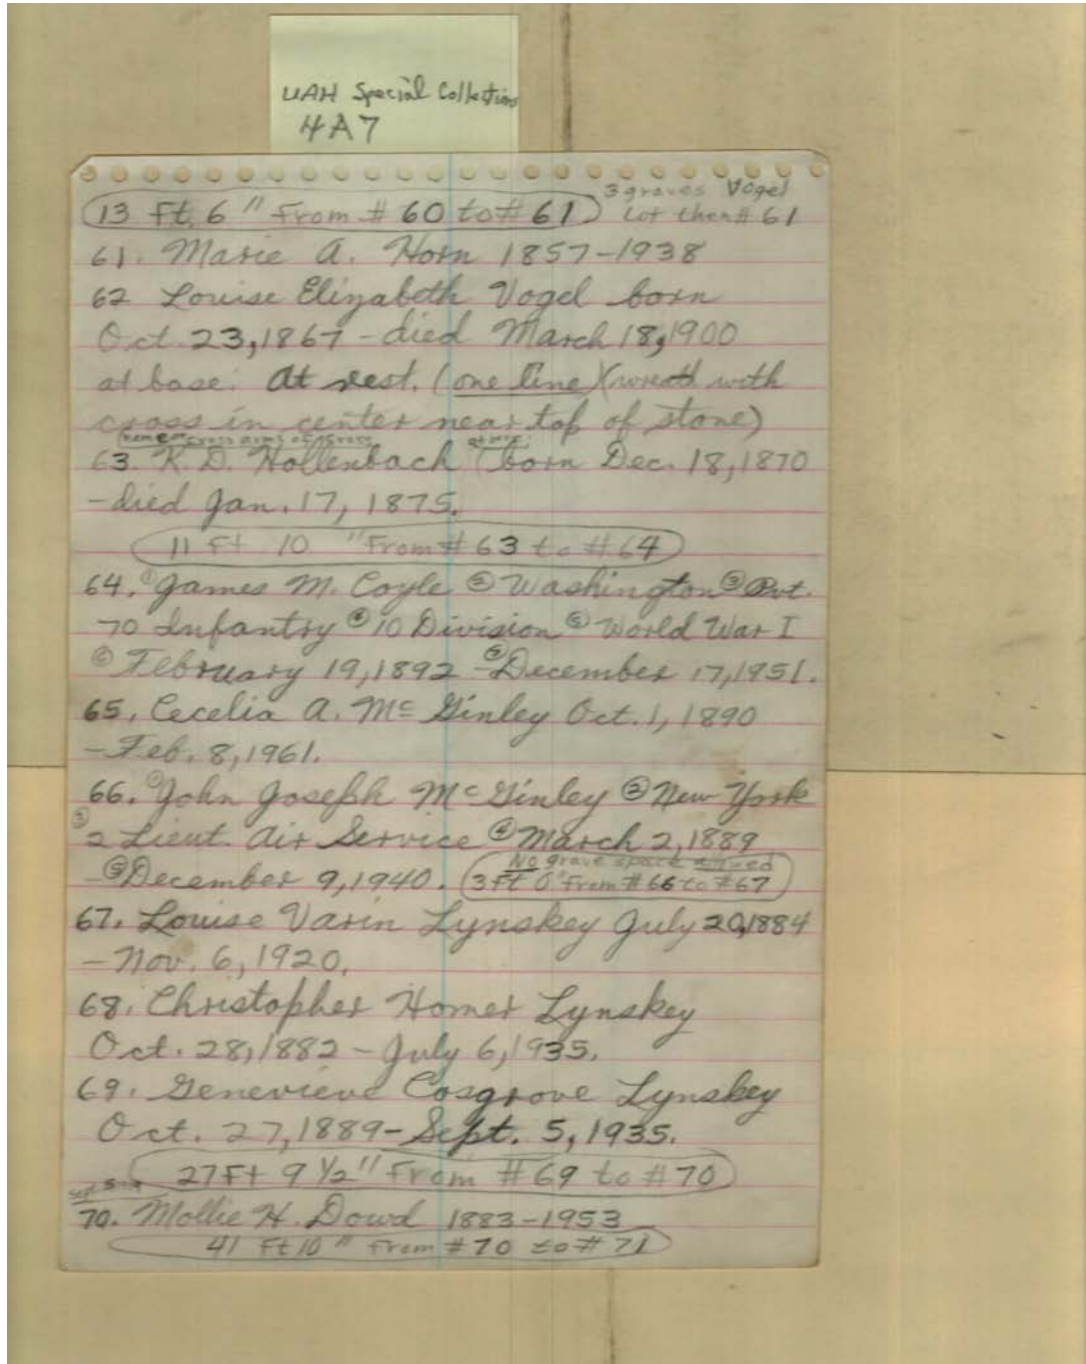 UAH Special Collections
4A7
3 graves Vogel
13 Ft. 6" From # 60 to # 61 Lot then # 61
61. Marie A. Horn 1857-1938
62 Louise Elizabeth Vogel born
Oct. 23, 1867 - died March 18, 1900
at base: At rest. (one line) (wreath with
cross in center near top of stone)
cross arms of cross
63. K. D. Hollenbach (born Dec. 18, 1870
- died Jan. 17, 1875.
11 Ft 10 " From # 63 to # 64
64. ① James M. Coyle ② Washington ③ Pvt.
70 Infantry ④ 10 Division ⑤ World War I
⑥ February 19, 1892 - ⑦ December 17, 1951.
65. Cecelia A. McGinley Oct. 1, 1890
- Feb. 8, 1961.
66. ① John Joseph McGinley ② New York
③ 2 Lieut. Air Service ④ March 2, 1889
No grave space
- ⑤ December 9, 1940. 3 Ft 0" From # 66 to # 67
67. Louise Varin Lynskey July 20, 1884
- Nov. 6, 1920.
68. Christopher Homer Lynskey
Oct. 28, 1882 - July 6, 1935.
69. Genevieve Cosgrove Lynskey
Oct. 27, 1889 - Sept. 5, 1935.
27 Ft 9 1/2" From # 69 to # 70
70. Mollie H. Dowd 1883-1953
41 Ft 10" From # 70 to # 71